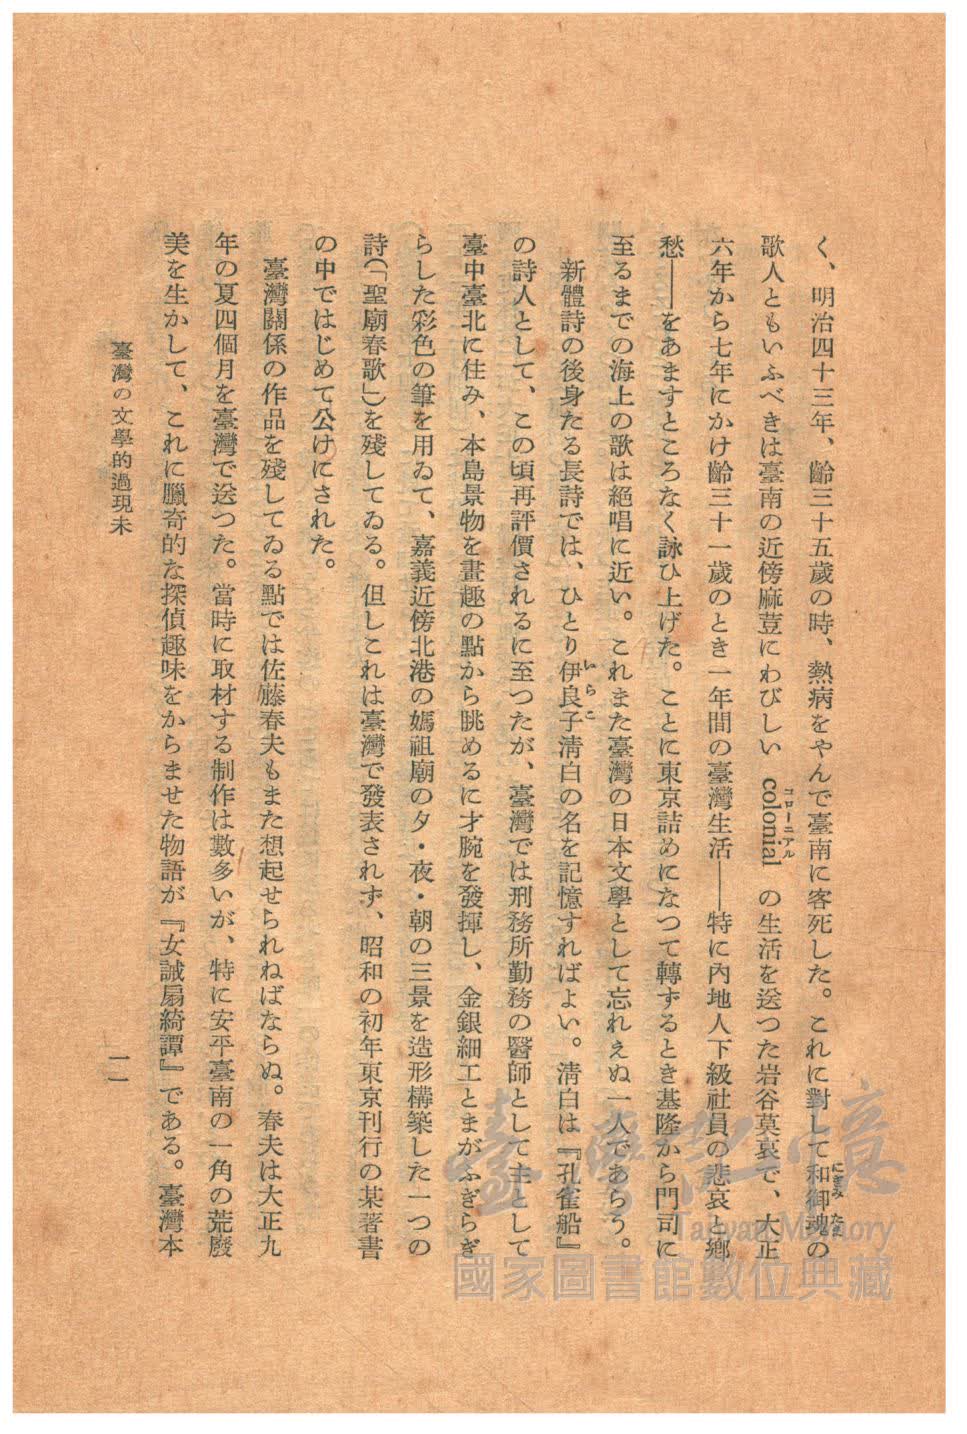 く、明治四十三年、齡三十五歲の時、熱病をやんで臺南に客死した。これに對して和御魂の
にぎみたま
歌人ともいふべきは臺南の近傍麻荳にわびしい colonial の生活を送つた岩谷莫哀で、大正
コローニアル
六年から七年にかけ齡三十一歲のとき一年間の臺灣生活――特に內地人下級社員の悲哀と鄕
愁――をあますところなく詠ひ上げた。ことに東京詰めになつて轉ずるとき基隆から門司に
至るまでの海上の歌は絕唱に近い。これまた臺灣の日本文學として忘れえぬ一人であらう。
新體詩の後身たる長詩では、ひとり伊良子淸白の名を記憶すればよい。淸白は『孔雀船』
いらこ
の詩人として、この頃再評價されるに至つたが、臺灣では刑務所勤務の醫師として主として
臺中臺北に住み、本島景物を畫趣の點から眺めるに才腕を發揮し、金銀細工とまがふぎらぎ
らした彩色の筆を用ゐて、嘉義近傍北港の媽祖廟の夕・夜・朝の三景を造形構築した一つの
詩(「聖廟春歌」)を殘してゐる。但しこれは臺灣で發表されず、昭和の初年東京刊行の某著書
の中ではじめて公けにされた。
臺灣關係の作品を殘してゐる點では佐藤春夫もまた想起せられねばならぬ。春夫は大正九
年の夏四個月を臺灣で送つた。當時に取材する制作は數多いが、特に安平臺南の一角の荒廢
美を生かして、これに臘奇的な探偵趣味をからませた物語が『女誡扇綺譚』である。臺灣本
臺灣の文學的過現未
一一
臺灣記憶
Taiwan Memory
國家圖書館數位典藏